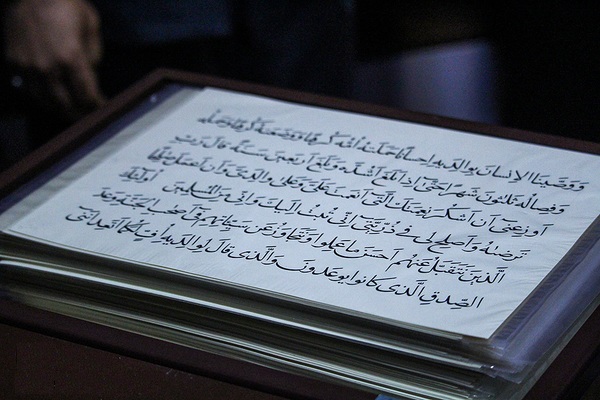 وَوَصَّيْنَا الْإِنْسَانَ بِوَالِدَيْهِ إِحْسَانًا حَمَلَتْهُ أُمُّهُ كُرْهًا وَوَضَعَتْهُ كُرْهًا وَحَمْلُهُ
وَفِصَالُهُ ثَلَاثُونَ شَهْرًا حَتَّى إِذَا بَلَغَ أَشُدَّهُ وَبَلَغَ أَرْبَعِينَ سَنَةً قَالَ رَبِّ
أَوْزِعْنِي أَنْ أَشْكُرَ نِعْمَتَكَ الَّتِي أَنْعَمْتَ عَلَيَّ وَعَلَى وَالِدَيَّ وَأَنْ أَعْمَلَ صَالِحًا
تَرْضَاهُ وَأَصْلِحْ لِي فِي ذُرِّيَّتِي إِنِّي تُبْتُ إِلَيْكَ وَإِنِّي مِنَ الْمُسْلِمِينَ أُولَئِكَ
الَّذِينَ نَتَقَبَّلُ عَنْهُمْ أَحْسَنَ مَا عَمِلُوا وَنَتَجَاوَزُ عَنْ سَيِّئَاتِهِمْ فِي أَصْحَابِ الْجَنَّةِ وَعْدَ
الصِّدْقِ الَّذِي كَانُوا يُوعَدُونَ وَالَّذِي قَالَ لِوَالِدَيْهِ أُفٍّ لَكُمَا أَتَعِدَانِنِي